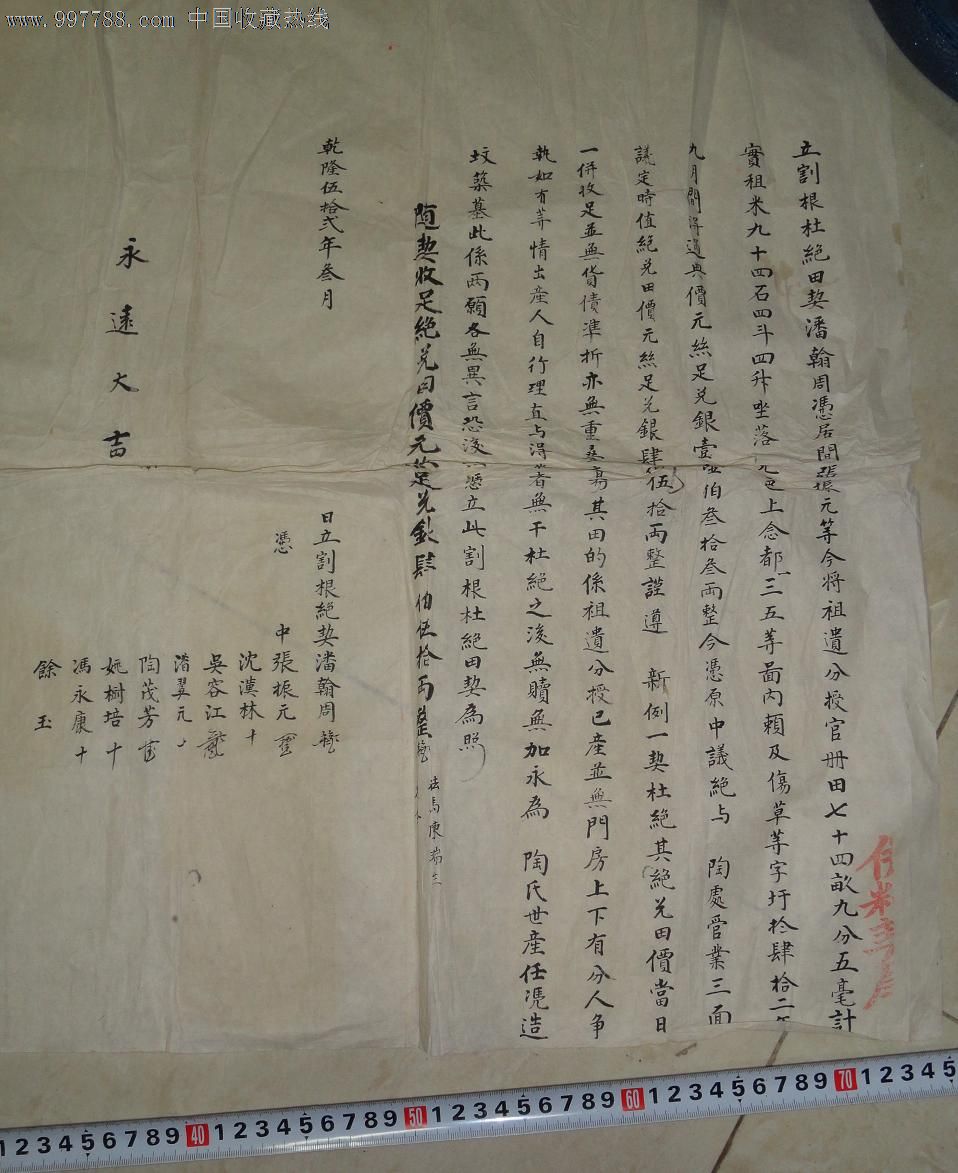 www.997788.com 中国收藏热线
立割根杜絕田契潘翰周憑居間張元等今將祖遺分授官冊田七十四畝九分五毫計
實租米九十四石四斗四升坐落元邑上念都一三五等啚內賴及傷草等字圩拾肆拾二年
九月間得過典價元絲足兌銀壹伯叁拾叁兩整今憑原中議絕与 陶處管業三面
議定時值絕兌田價元絲足兌銀肆伍拾兩整謹遵 新例一契杜絕其絕兌田價當日
一併收足並無貨債準折亦無重叠其田的係祖遺分授已產並無門房上下有分人爭
執如有等情出產人自行理直与得業者無干杜絕之後無贖無加永為 陶氏世產任憑造
坟築墓此係兩願各無異言恐後憑立此割根杜絕田契為照
隨契收足絕兌田價元足兌銀肆伯伍拾両整
法馬康
乾隆伍拾弍年叁月 日立割根絕契潘翰周
憑 中張振元
沈漢林十
吳容江
潘翼元
陶茂芳
姚樹培十
馮永康十
餘玉
永遠大吉
1 2 3 4 5 6 7 8 9 40 1 2 3 4 5 6 7 8 9 50 1 2 3 4 5 6 7 8 9 60 1 2 3 4 5 6 7 8 9 70 1 2 3 4 5